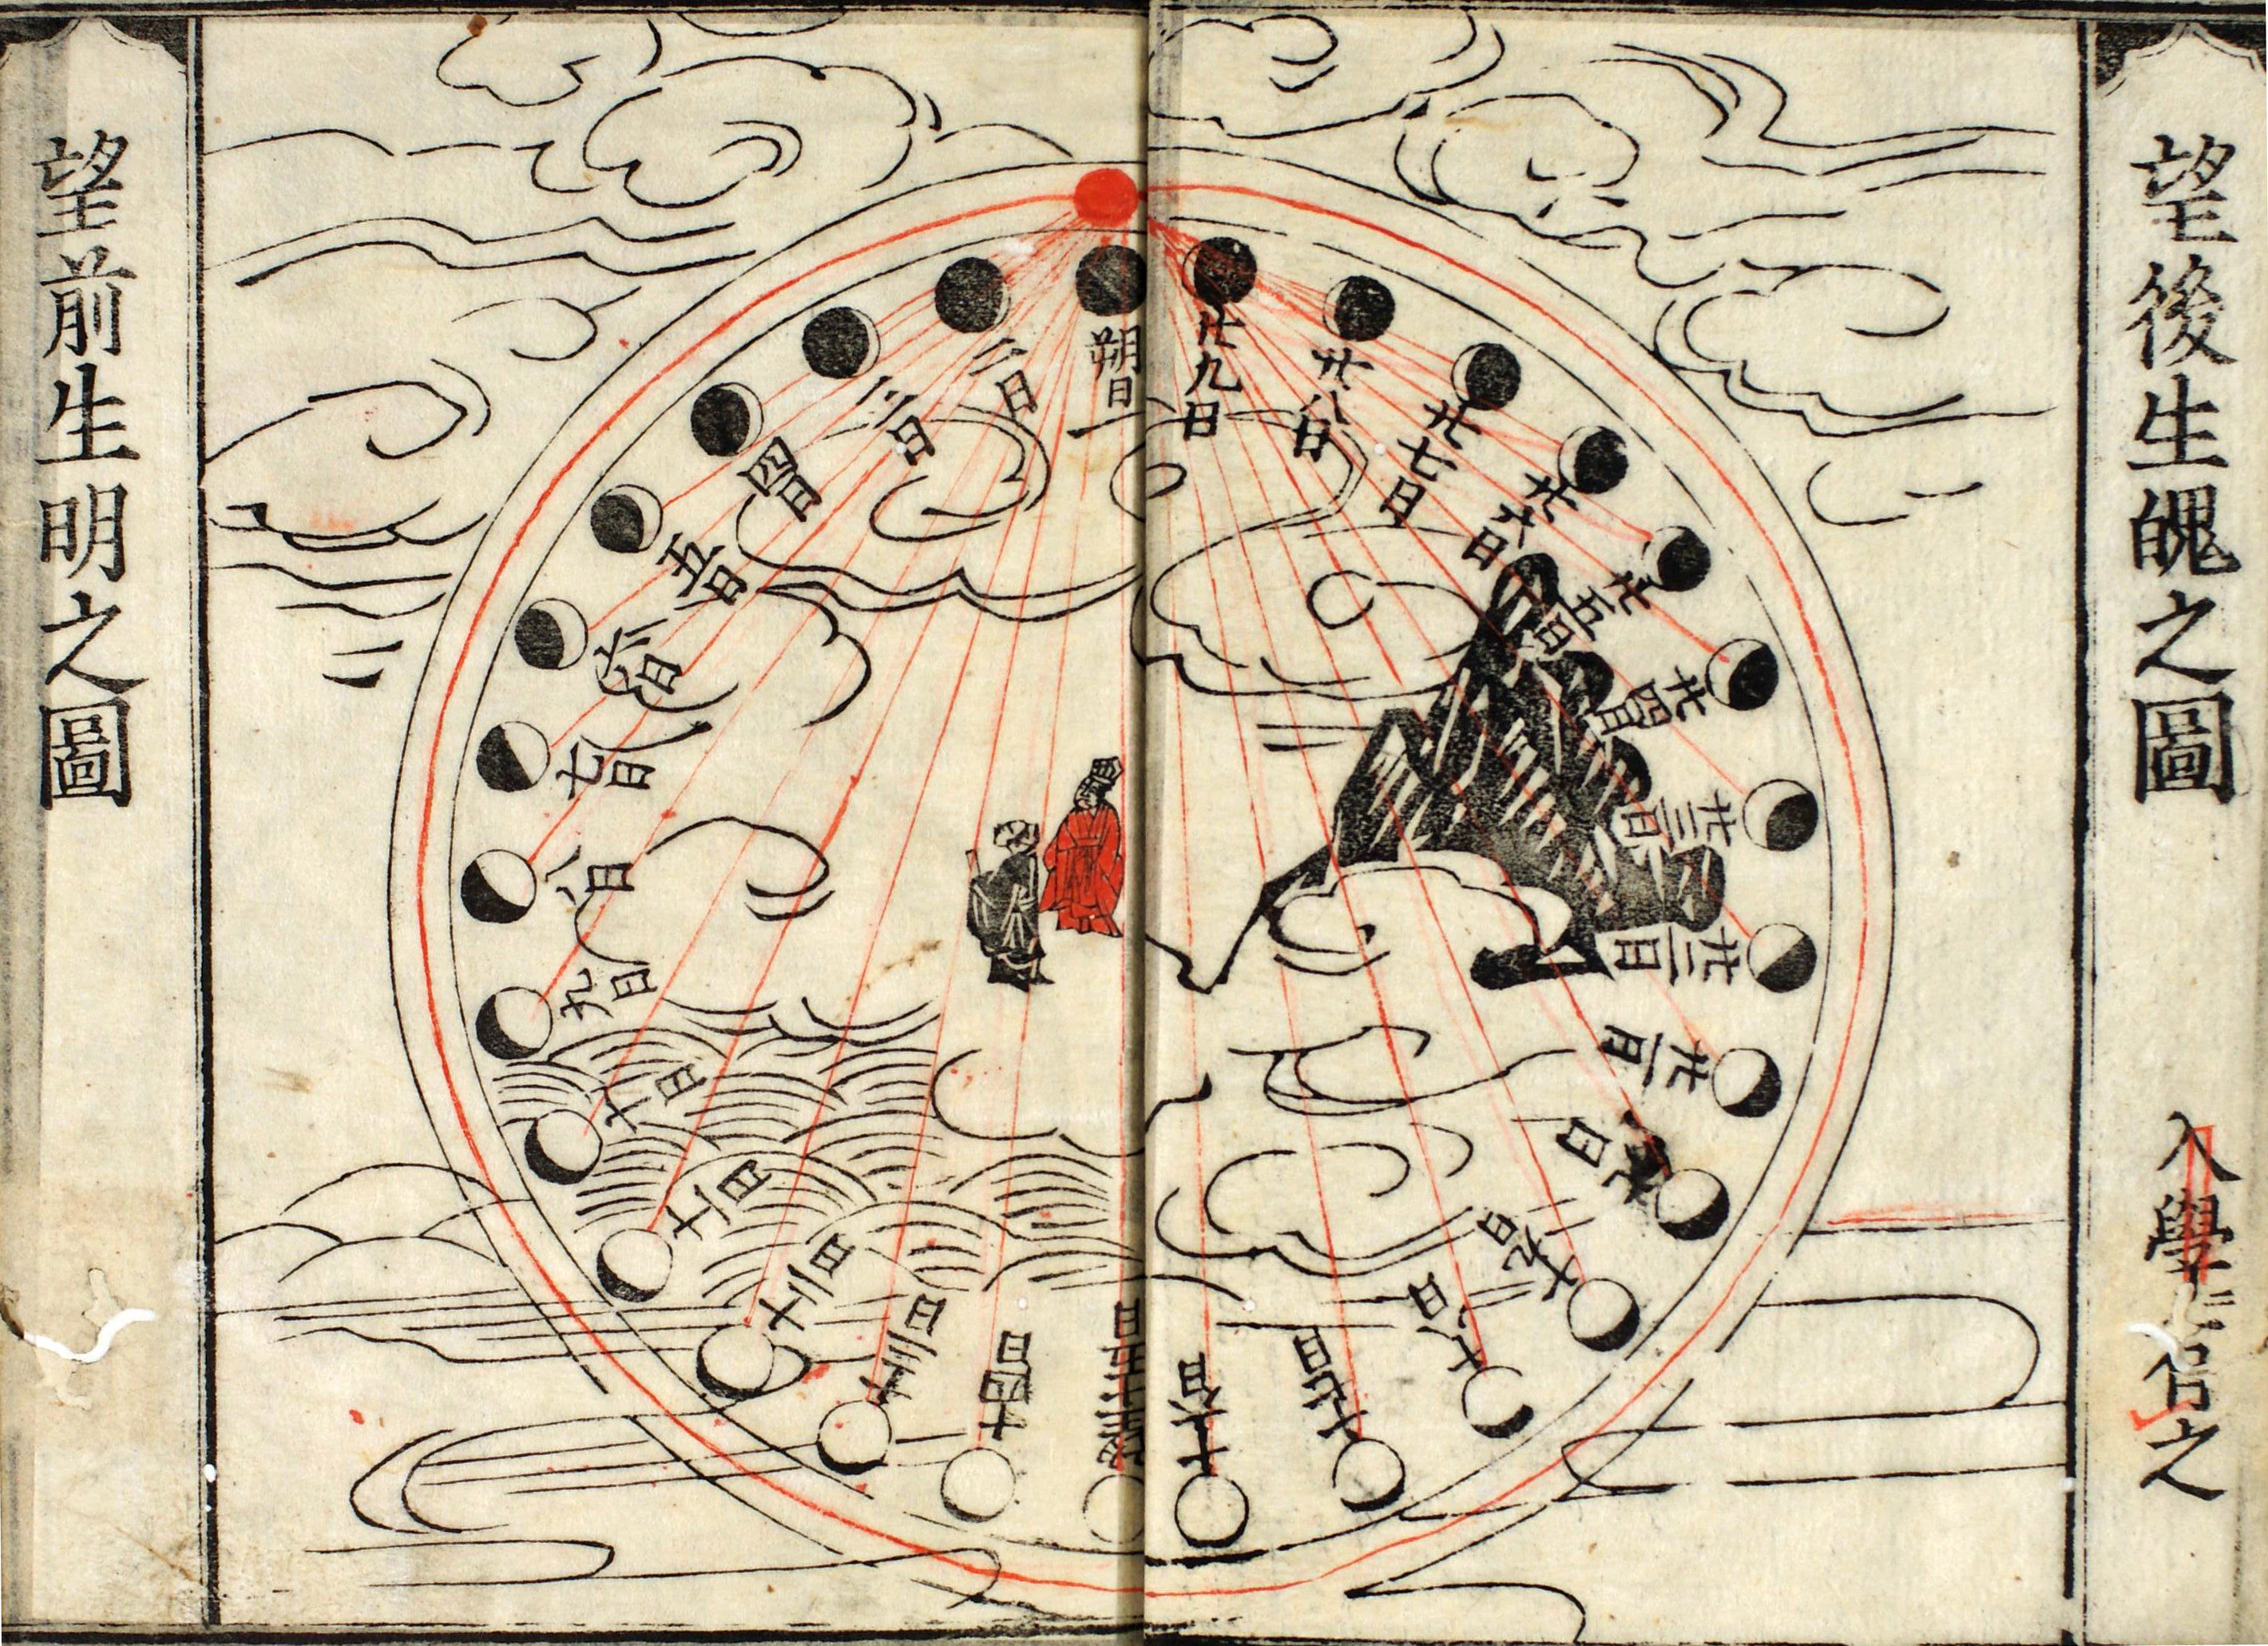 望後生魄之圖
入學 之
望前生明之圖
朔日
二日
三日
四日
五日
六日
七日
八日
九日
十日
十一日
十二日
十三日
十四日
十六日
十七日
十八日
十九日
廿一日
廿二日
廿三日
廿四日
廿五日
廿六日
廿七日
廿八日
廿九日